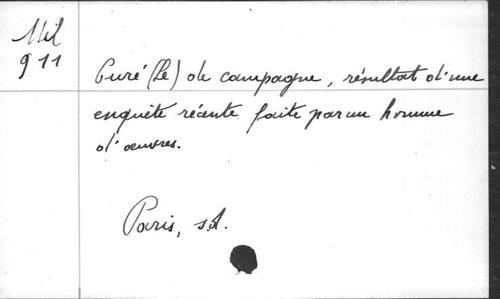 Mil
911
Curé (Le) de campagne, résultat d'une
enquête récente faite par un homme
d'œuvres.
Paris, s.d.